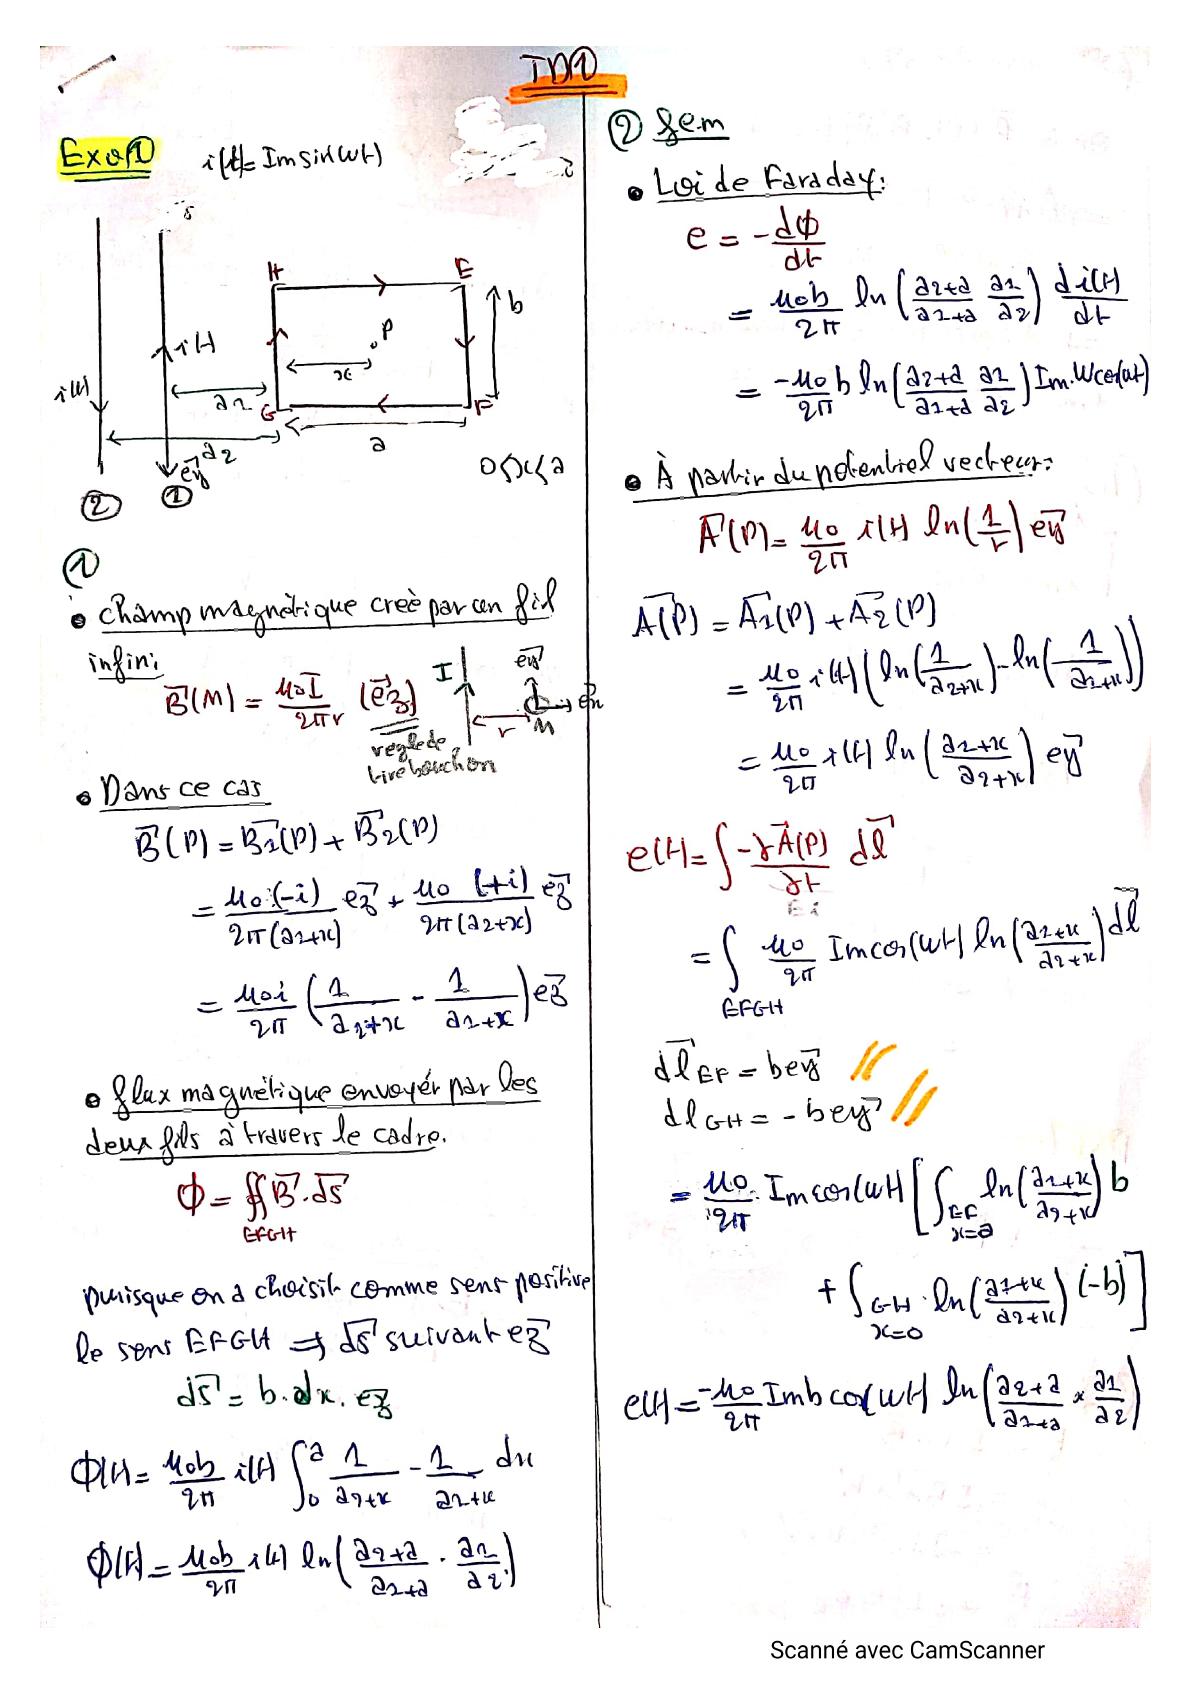 TD1
Exo1
i(t)= Im sin(wt)
H
E
b
P
x
i(t)
i(t)
a1
G
F
a
a2
ey
0≤x≤a
②
①
①
• champ magnétique creè par un fil
infini:
B(M) = μoI/2πr (ez)
règle de
tire bouchon
I
ey
r
M
• Dans ce cas
B(P) = B1(P) + B2(P)
= μo(-i)/2π(a1+x) ez + μo(+i)/2π(a2+x) ez
= μoi/2π (1/a2+x - 1/a1+x) ez
• flux magnétique envoyér par les
deux fils à travers le cadre.
ϕ = ∯ B.ds
EFGH
puisque on a choisit comme sens positive
le sens EFGH ⇒ ds suivant ez
ds = b.dx.ez
ϕ(t) = μob/2π i(t) ∫0^a 1/a2+x - 1/a1+x dx
ϕ(t) = μob/2π i(t) ln(a2+a/a1+a . a1/a2)
② fem
• Loi de Faraday:
e = -dϕ/dt
= μob/2π ln(a2+a/a1+a a1/a2) di(t)/dt
= -μo/2π b ln(a2+a/a1+a a1/a2) Im.Wcos(wt)
• À partir du potentiel vecteur:
A(P) = μo/2π i(t) ln(1/r) ey
A(P) = A1(P) + A2(P)
= μo/2π i(t) (ln(1/a2+x) - ln(1/a1+x))
= μo/2π i(t) ln(a1+x/a2+x) ey
e(t) = ∫ -∂A(P)/∂t dl
= ∫EFGH μo/2π Im cos(wt) ln(a1+x/a2+x) dl
dl EF = b ey
dl GH = -b ey
= μo/2π . Im cos(wt) [∫EF x=a ln(a1+x/a2+x) b
+ ∫GH x=0 . ln(a1+x/a2+x) (-b)]
e(t) = -μo/2π Im b cos(wt) ln(a2+a/a1+a × a1/a2)
Scanné avec CamScanner